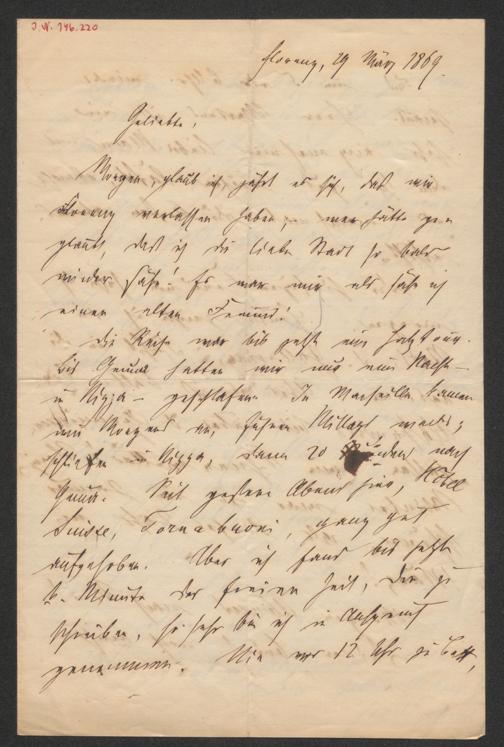 J.N. 146.220
Florenz, 29 März 1869.
Geliebte!
Morgen glaub ich jährt es sich, daß wir
Florenz verlassen haben, wer hätte ge-
glaubt, daß ich die liebe Stadt so bald
wieder sähe! Es war mir als sähe ich
einen alten Freund!
Die Reise war bis jetzt eine Hetztour.
Bis Genua hatten wir nur eine Nacht –
in Nizza – geschlafen. In Marseille kamen
wir Morgens an, fuhren Mittags weiter;
schliefen in Nizza, dann 20 Stunden nach
Genua. Seit gestern Abend hier, Hôtel
Suisse, Tornabuoni, ganz gut
aufgehoben. Aber ich fand bis jetzt
k. Minute der freien Zeit, Dir zu
schreiben, so sehr bin ich in Anspruch
genommen. Nie vor 12 Uhr zu Bett,